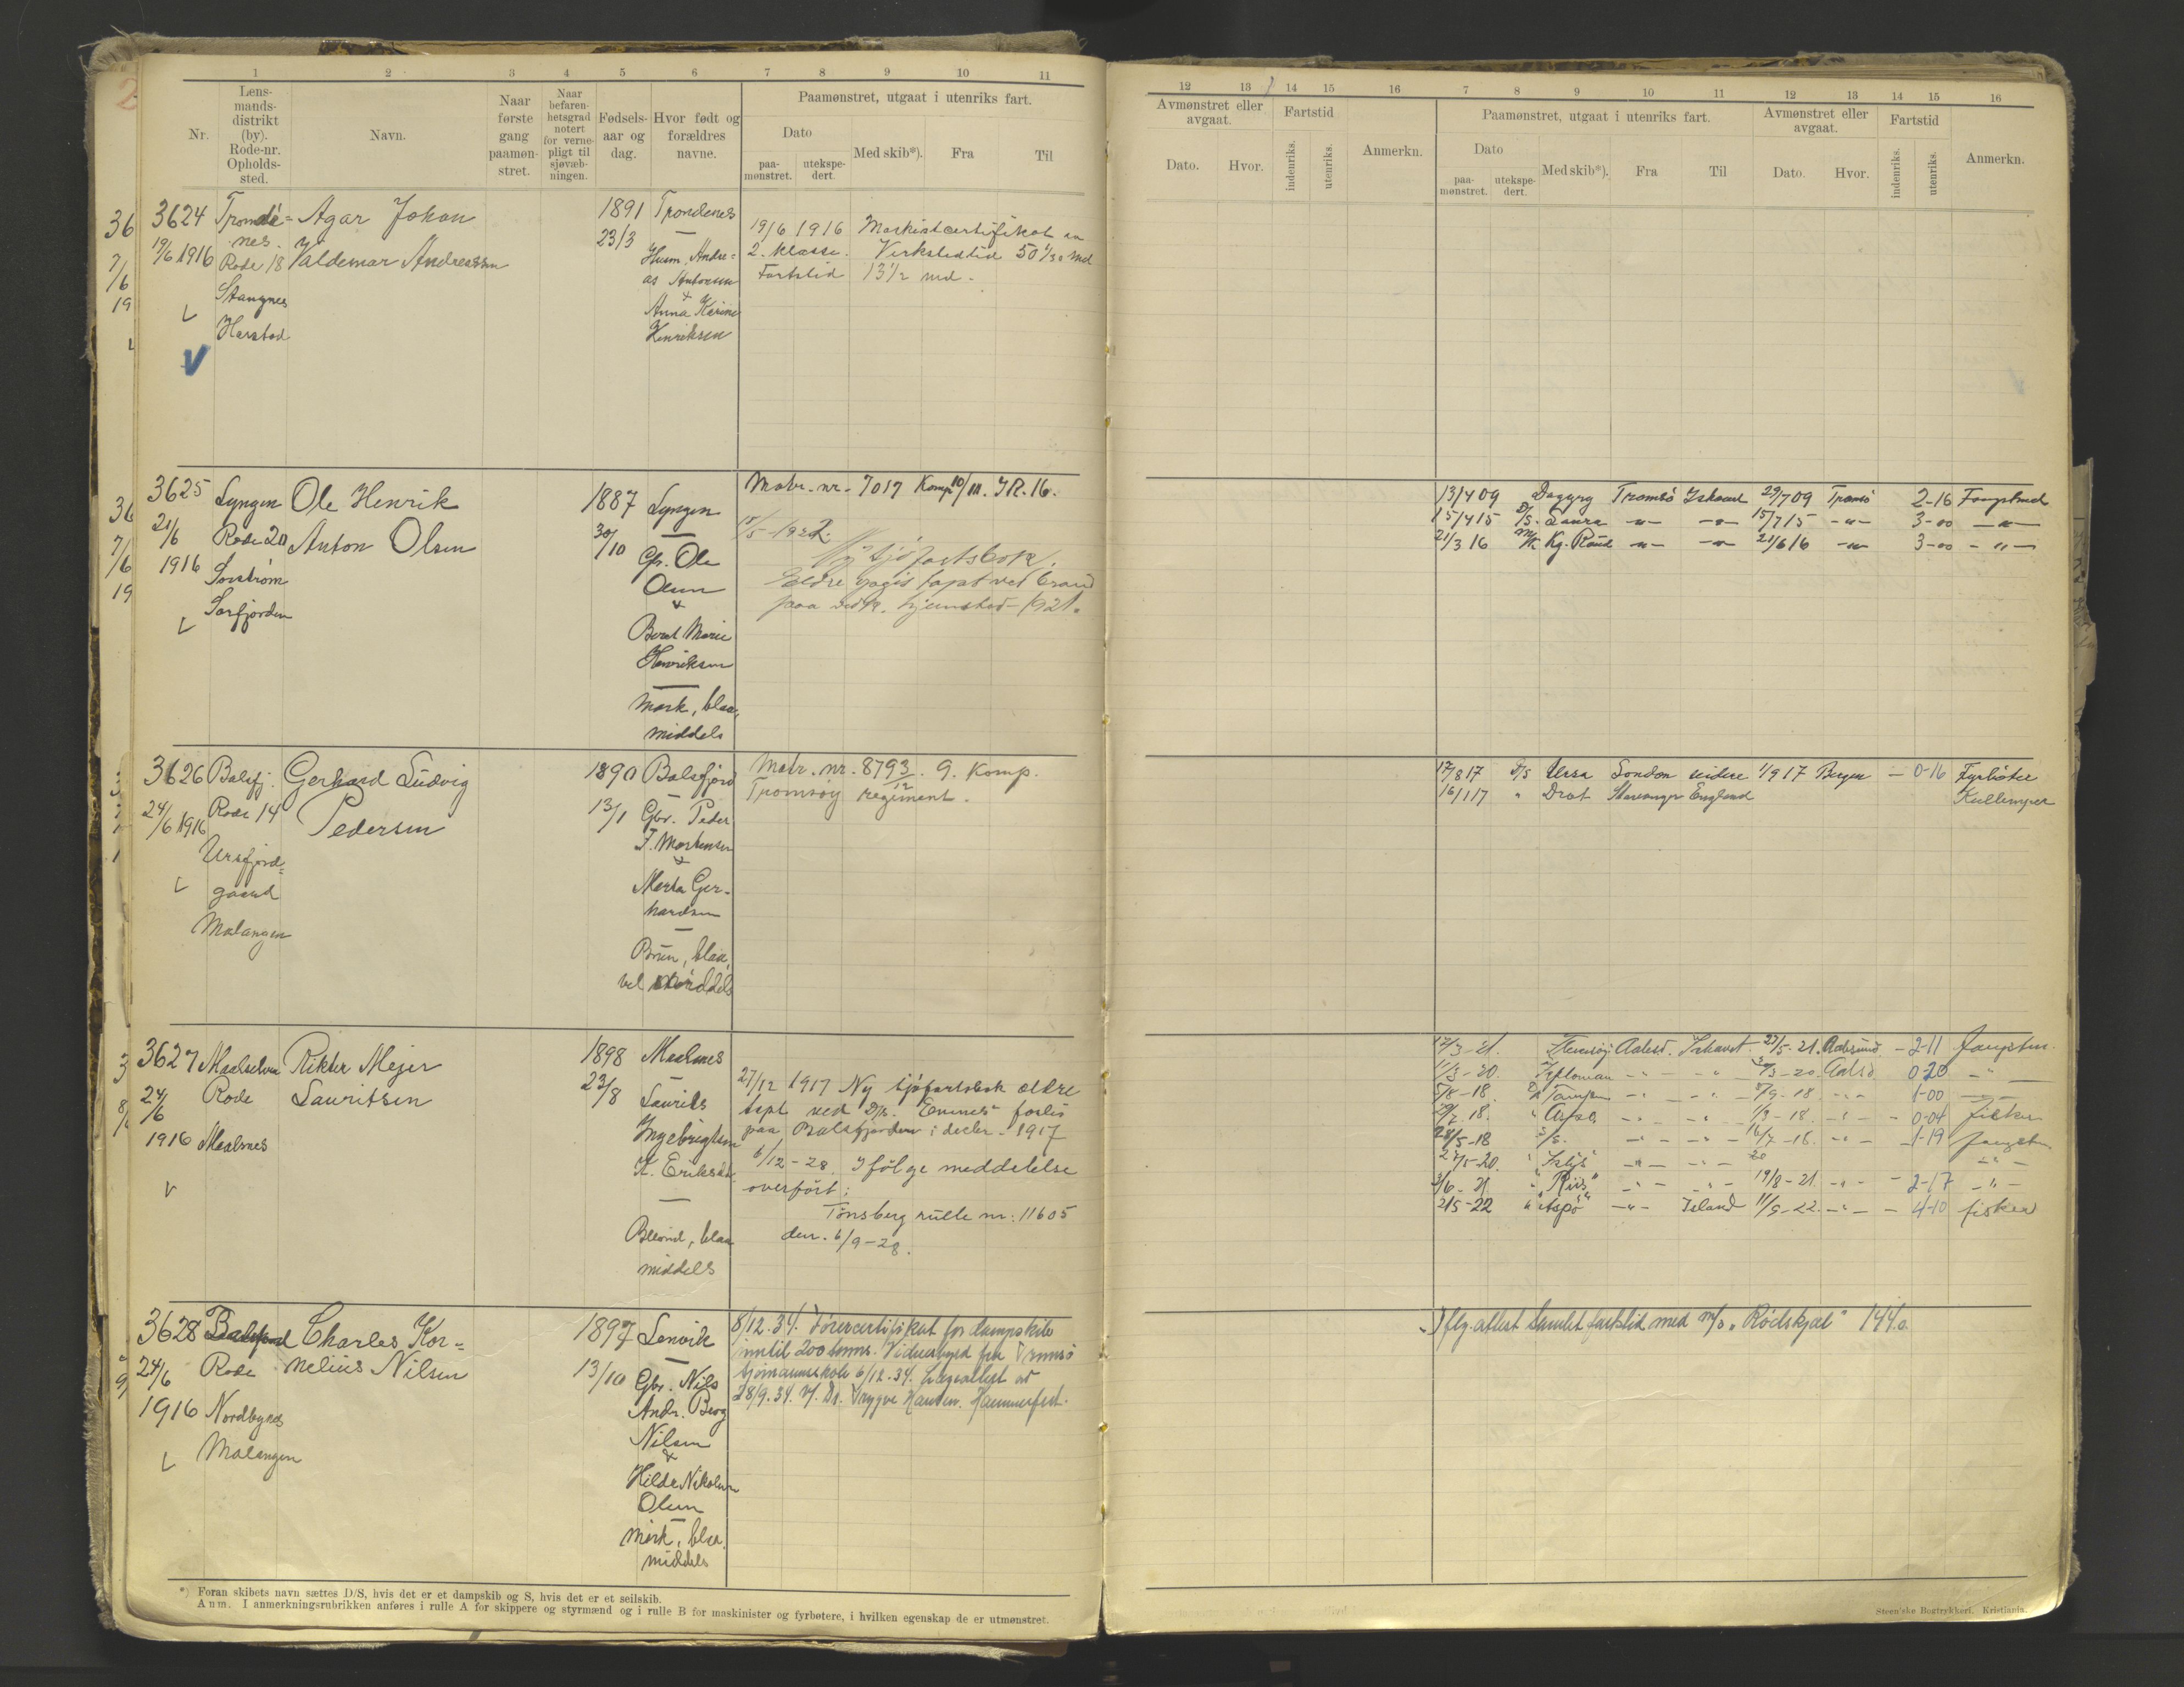 1 2 3 4 5 6 7 8 9 10 11
Nr.
Lens-
mands-
distrikt
(by).
Rode-nr.
Opholds-
sted.
Navn.
Naar
første
gang
paamøn-
stret.
Naar
befaren-
hetsgrad
notert
for verne-
pligt til
sjøvæb-
ningen.
Fødsels-
aar og
dag.
Hvor født og
forældres
navne.
Paamønstret, utgaat i utenriks fart.
Dato
paa-
mønstret.
utekspe-
dert.
Med skib*).
Fra
Til
3624
19/6 1916
Trondé=
nes.
Rode 18
Stangnes
Harstad
Agar Johan
Valdemar Andreassen
1891
23/3
Trondenes
Husm. Andre=
as Antonsen
&
Anna Karine
Henriksen
19/6 1916 Maskistcertifikat av
2. klasse. Verkstedtid 50 1/30 md
Fartstid 13 1/2 md.
3625
21/6
1916
Lyngen
Rode 20
Sorstrøm
Sorfjorden
Ole Henrik
Anton Olsen
1887
30/10
Lyngen
Gbr. Ole
Olsen
&
Berit Marie
Henriksen
Mørk, blaa,
middels
Matr. nr. 7017 Komp 10/11. IR. 16.
15/5-1922.
Ny sjøfartsbok.
Eldre opgis tapt ved brand
paa hjemsted 1921.
3626
24/6 1916
Balsfj.
Rode 14
Ursfjord=
gaard
Malangen
Gerhard Ludvig
Pedersen
1890
13/1
Balsfjord
Gbr. Peder
J. Mortensen
&
Marta Ger-
hardsen
Brun, blaa,
vel middels
Matr. nr. 8793/12. 9. Komp.
Tromsøy regiment.
3627
24/6
1916
Maalselven
Rode
Maalsnes
Rikter Mejer
Lauritsen
1898
23/8
Maalsnes
Laurits
Ingebrigtsen
K. Eriksdtr.
Blond, blaa
middels
27/12 1917 Ny sjøfartsbok ældre
tapt ved D/s. "Evenes" forlis
paa Balsfjorden i decbr. 1917
6/12-28. Ifølge meddelelse
overført:
Tønsberg rulle nr: 11605
den. 6/9-28.
3628
24/6
1916
Balsfjord
Rode
Nordbynes
Malangen
Charles Kor=
nelius Nilsen
1897
13/10
Lenvik
Gbr. Nils
Andr. Berg
Nilsen
&
Hilda Nikoline
Olsen
Mørk, blaa
middels
8/12.34. Førercertifikat for dampskib
inntil 200 tonns. Vidnesbyrd fra Tromsø
sjømannsskole 6/12.34. Lægeattest av
28/9.34 v/ Dr. Trygve Hansen. Hammerfest.
*) Foran skibets navn sættes D/S, hvis det er et dampskib og S, hvis det er et seilskib.
Anm. I anmerkningsrubrikken anføres i rulle A for skippere og styrmænd og i rulle B for maskinister og fyrbøtere, i hvilken egenskap de er utmønstret.
12 13 14 15 16 7 8 9 10 11 12 13 14 15 16
Avmønstret eller
avgaat.
Dato.
Hvor.
Fartstid
indenriks.
utenriks.
Anmerkn.
Paamønstret, utgaat i utenriks fart.
Dato
paa-
mønstret.
utekspe-
dert.
Med skib*).
Fra
Til
Avmønstret eller
avgaat.
Dato.
Hvor.
Fartstid
indenriks.
utenriks.
Anmerkn.
13/4 09 Dagyry Tromsø Ishavet 29/7 09 Tromsø 2-16 Fangstmd
15/4 15 D/S. Laura -"- -"- 15/7 15 -"- 3-00 -"-
21/3 16 M/K Kg. Raud -"- -"- 21/6 16 -"- 3-00 -"-
17/8 17 D/S Ursa London videre 1/9 17 Bergen - 0-16 Fyrbøter
16/1 17 " Drot Stavanger England Kullemper
17/3-21. Aalesd. Ishavet 27/5-21. Aalesund - 2-11 Fangstm.
11/3-20. -"- -"- Aalsd. 0-20 -"-
5/8-18 -"- -"- 5/9-18 -"- 1-00 -"-
-"- -"- -"- 0-04 fisker
28/5-18 -"- -"- 16/7-18. -"- 1-19 fangst
-"- -"- -"-
2/6-21 "Riis" -"- -"- 19/8-21 -"- 2-17 -"-
2/5-22 "Aspø" -"- Island 11/9-22 -"- 4-10 fisker
Iflg. attest samlet fartstid med m/s "Rødskjæl" 144.0.
Steen'ske Bogtrykkeri. Kristiania.